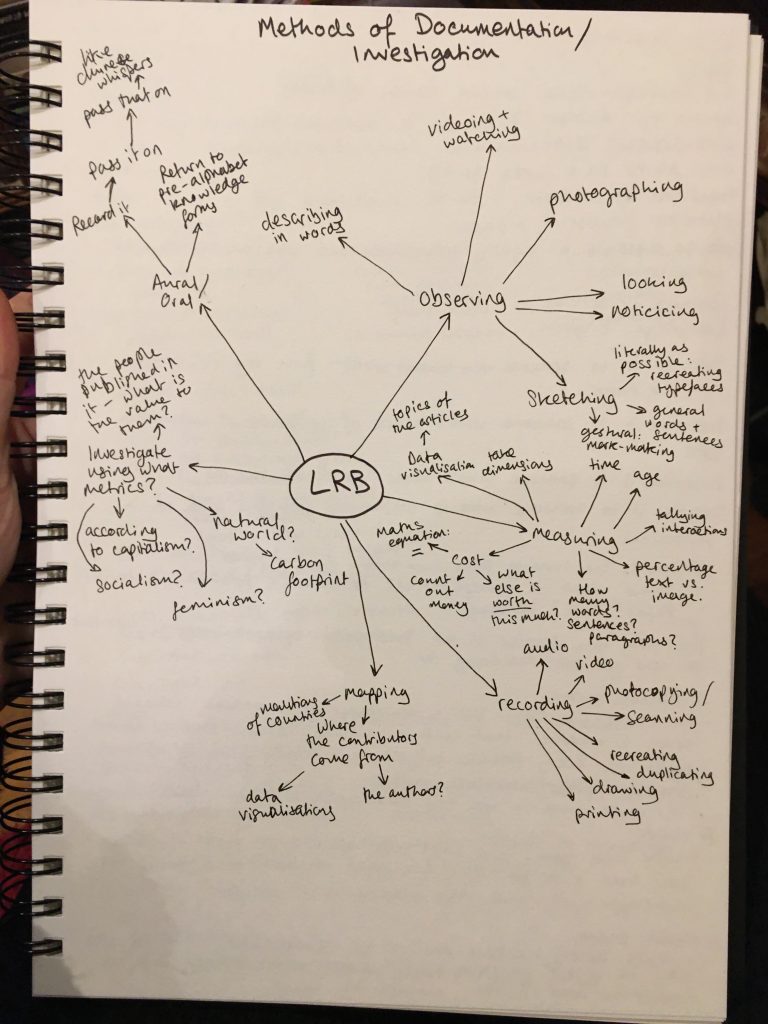 Methods of Documentation/
Investigation
like
chinese
whispers
pass that on
pass it on
Record it
Return to
pre-alphabet
knowledge
forms
Aural/
Oral
describing
in words
videoing +
watching
photographing
observing
looking
noticicing
Sketching
literally as
possible:
recreating
typefaces
general
words +
sentences
gestural:
mark-making
the people
published in
it - what is
the value to
them?
Investigate
using what
metrics?
according
to capitalism?
socialism?
feminism?
natural
world?
carbon
footprint
LRB
topics of
the articles
Data
visualisation
take
dimensions
time
age
tallying
interactions
measuring
percentage
text vs.
image.
How
many
words?
sentences?
paragraphs?
maths
equation:
=
cost
count
out
money
what
else is
worth
this much?
mapping
mentions
of countries
where
the contributors
come from
data
visualisations
the authors?
recording
audio
video
photocopying/
scanning
recreating
duplicating
drawing
printing